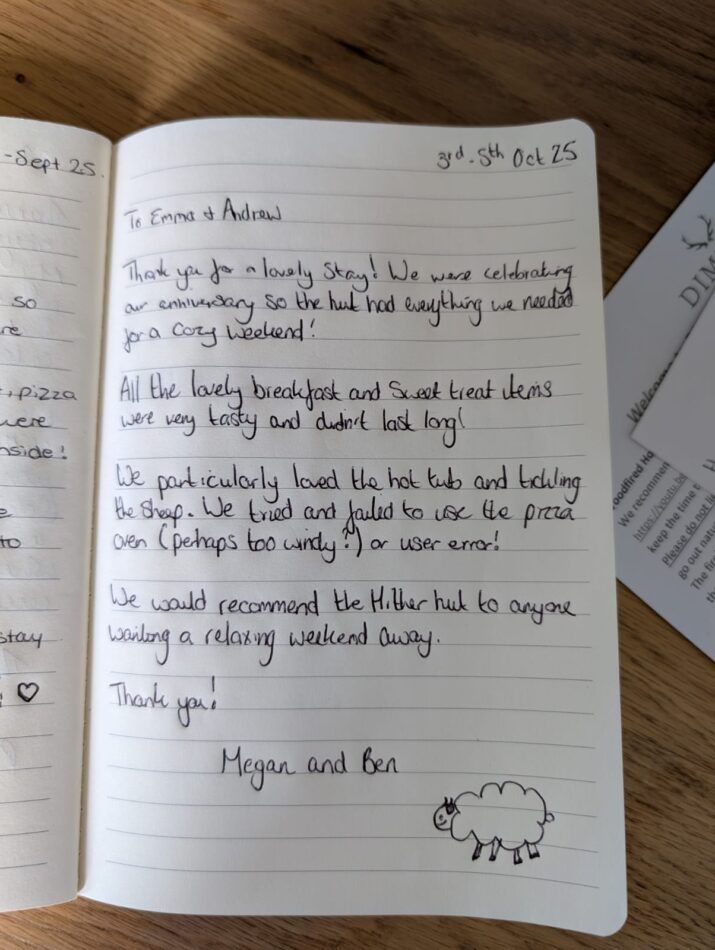 -Sept 25.
so
re
, pizza
were
nside!
e
to
stay
! ♡
3rd - 5th Oct 25
To Emma & Andrew
Thank you for a lovely stay! We were celebrating
our anniversary so the hut had everything we needed
for a cozy weekend!
All the lovely breakfast and sweet treat items
were very tasty and didn't last long!
We particularly loved the hot tub and tickling
the sheep. We tried and failed to use the pizza
oven (perhaps too windy?) or user error!
We would recommend the Hither hut to anyone
wanting a relaxing weekend away.
Thank you!
Megan and Ben
DIM
Welcom
oodfired Ho
We recommen
https://youtu.be
keep the time t
Please do not li
go out natu
The fir
th
H